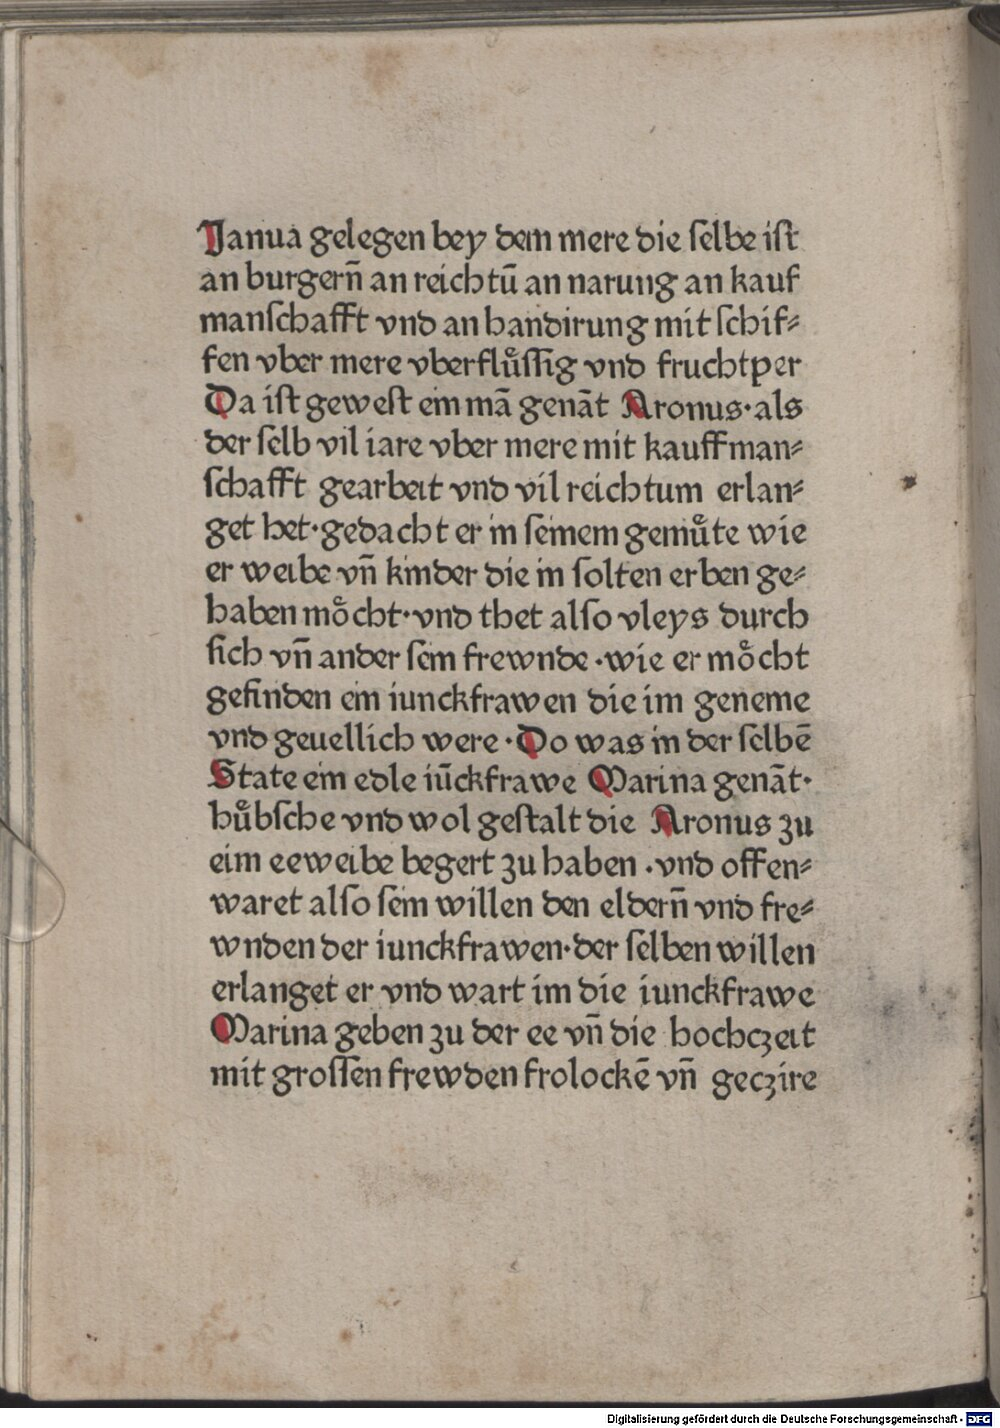 Janua gelegen bey dem mere die ſelbe iſt
an burgern̄ an reichtū an narung an kauf
manſchafft vnd an handirung mit ſchif⸗
fen vber mere vberflűſſig vnd fruchtper
Da iſt geweſt ein mā genāt Aronus·als
der ſelb vil iare vber mere mit kauffman⸗
ſchafft gearbeit vnd vil reichtum erlan⸗
get het·gedacht er in ſeinem gemuͤte wie
er weibe vn̄ kinder die in ſolten erben ge⸗
haben moͤcht·vnd thet alſo vleys durch
ſich vn̄ ander ſein frewnde ·wie er moͤcht
gefinden ein iunckfrawen die im geneme
vnd geuellich were ·Do was in der ſelbē
State ein edle iūckfrawe Marina genāt·
huͤbſche vnd wol geſtalt die Aronus zu
eim eeweibe begert zu haben ·vnd offen⸗
waret alſo ſein willen den eldern̄ vnd fre⸗
wnden der iunckfrawen·der ſelben willen
erlanget er vnd wart im die iunckfrawe
Marina geben zu der ee vn̄ die hochczeit
mit groſſen frewden frolockē vn̄ geczire
Digitalisierung gefördert durch die Deutsche Forschungsgemeinschaft - DFG